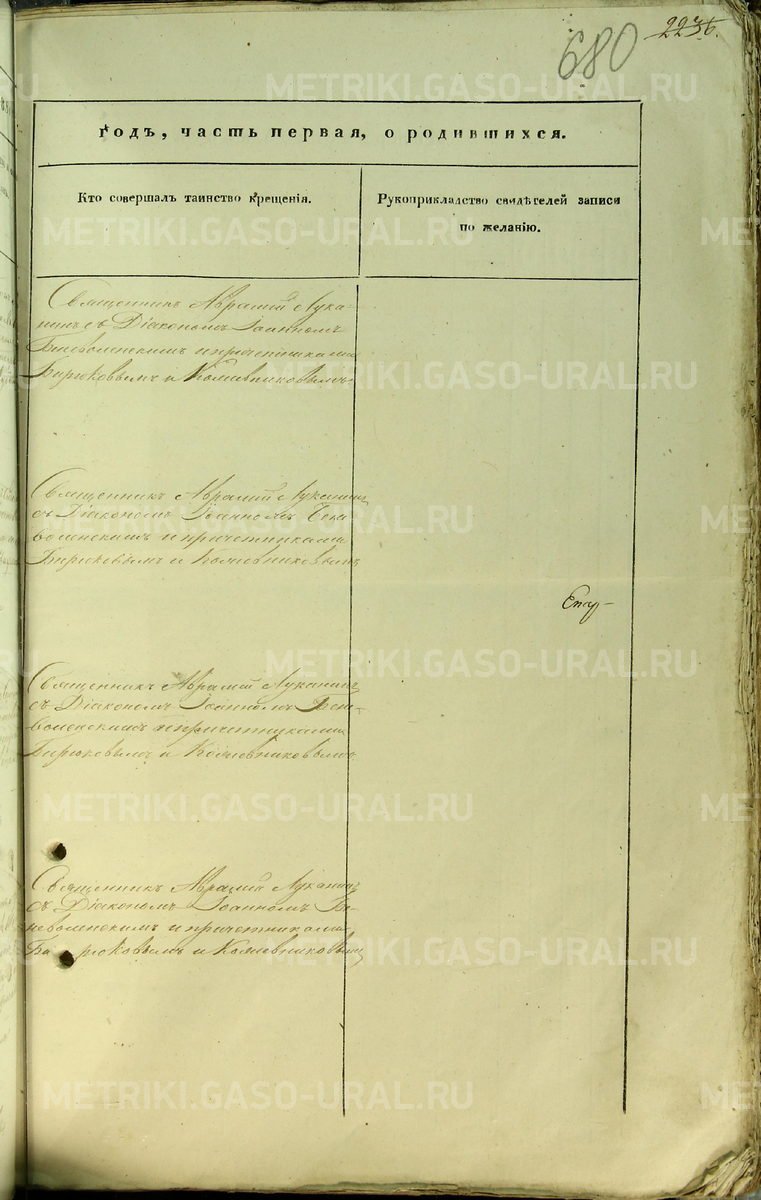 680
223
годъ, часть первая, о родившихся.
Кто совершалъ таинство крещенія.
Рукоприкладство свидѣтелей записи
по желанію.
Священникъ Аврамій Лука-
нинъ съ Діакономъ Іоанномъ
и причетниками
Бирюковымъ и Кожевниковымъ
Священникъ Аврамій Луканинъ
съ Діакономъ Іоанномъ
и причетниками
Бирюковымъ и Кожевниковымъ
Священникъ Аврамій Луканинъ
съ Діакономъ Іоанномъ
и причетниками
Бирюковымъ и Кожевниковымъ
Священникъ Аврамій Луканинъ
съ Діакономъ Іоанномъ
и причетниками
и Кожевниковымъ
METRIKI.GASO-URAL.RU